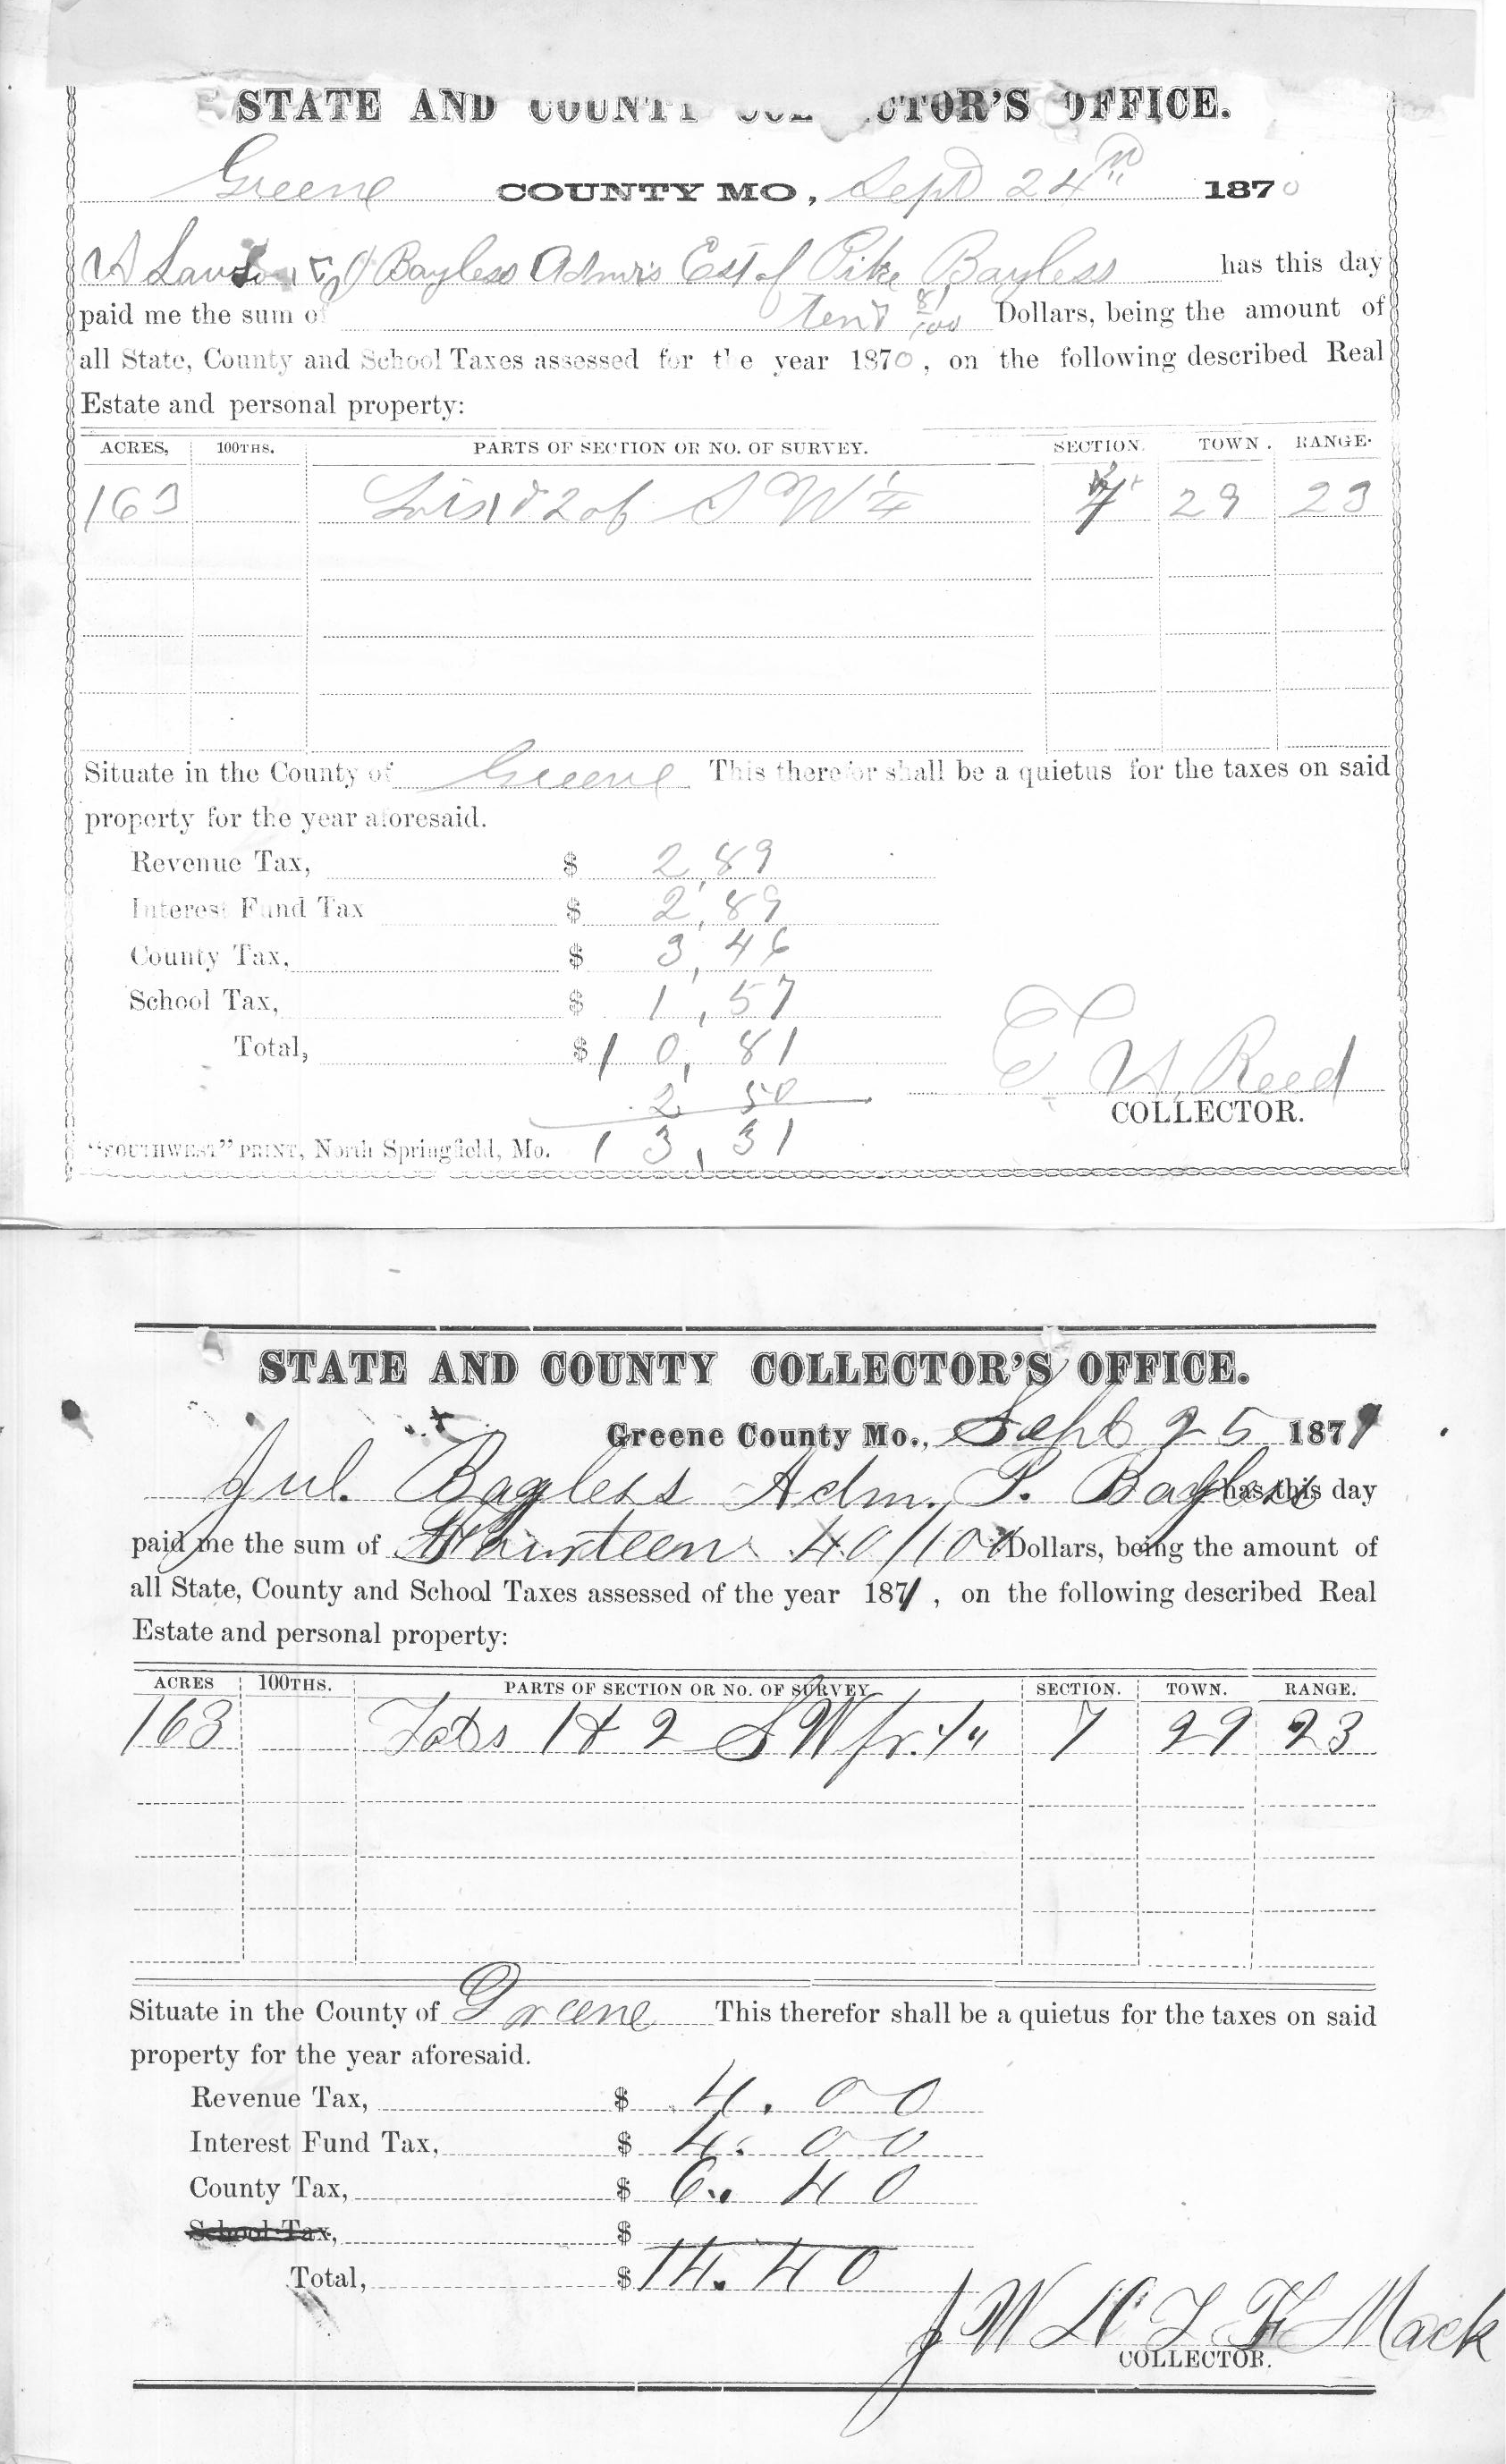 STATE AND COUNTY COLLECTOR'S OFFICE.
Greene COUNTY MO, Sept 24th 1870
Bayless Admrs Est of Pike Bayless has this day
paid me the sum of ten & 81/100 Dollars, being the amount of
all State, County and School Taxes assessed for the year 1870, on the following described Real
Estate and personal property:
ACRES, 100THS. PARTS OF SECTION OR NO. OF SURVEY. SECTION. TOWN. RANGE.
163 Lots 1 & 2 of S W 1/4 7 29 23
Situate in the County of Greene This therefor shall be a quietus for the taxes on said
property for the year aforesaid.
Revenue Tax, $ 2,89
Interest Fund Tax $ 2,89
County Tax, $ 3,46
School Tax, $ 1,57
Total, $ 10,81
2 50
E Reed
COLLECTOR.
"SOUTHWEST" PRINT, North Springfield, Mo. 13,31
STATE AND COUNTY COLLECTOR'S OFFICE.
Greene County Mo., Sept 25 1871
Jul. Bayless Adm. P. Bayless has this day
paid me the sum of 40/100 Dollars, being the amount of
all State, County and School Taxes assessed of the year 1871, on the following described Real
Estate and personal property:
ACRES 100THS. PARTS OF SECTION OR NO. OF SURVEY SECTION. TOWN. RANGE.
163 Lots 1 & 2 SW fr. 1/4 7 29 23
Situate in the County of Greene This therefor shall be a quietus for the taxes on said
property for the year aforesaid.
Revenue Tax, $ 4.00
Interest Fund Tax, $ 4.00
County Tax, $ 6.40
School Tax, $
Total, $ 14.40
J W Mack
COLLECTOR.